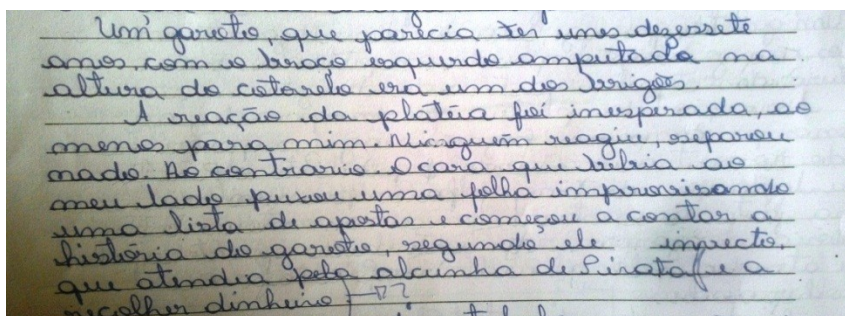 Um garoto, que parecia ter uns dezessete
anos com o braço esquerdo amputado na
altura do cotovelo era um dos brigões.
A reação da platéia foi inesperada, ao
menos para mim. Ninguém reagiu, separou
nada. Ao contrario O cara que bebia ao
meu lado puxou uma folha improvisando
uma lista de apostas e começou a contar a
história do garoto, segundo ele invicto,
que atendia pela alcunha de Pirata (e a
recolher dinheiro)